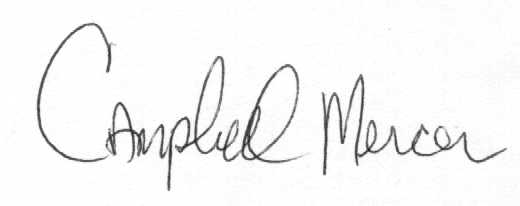 Campbell Mercer